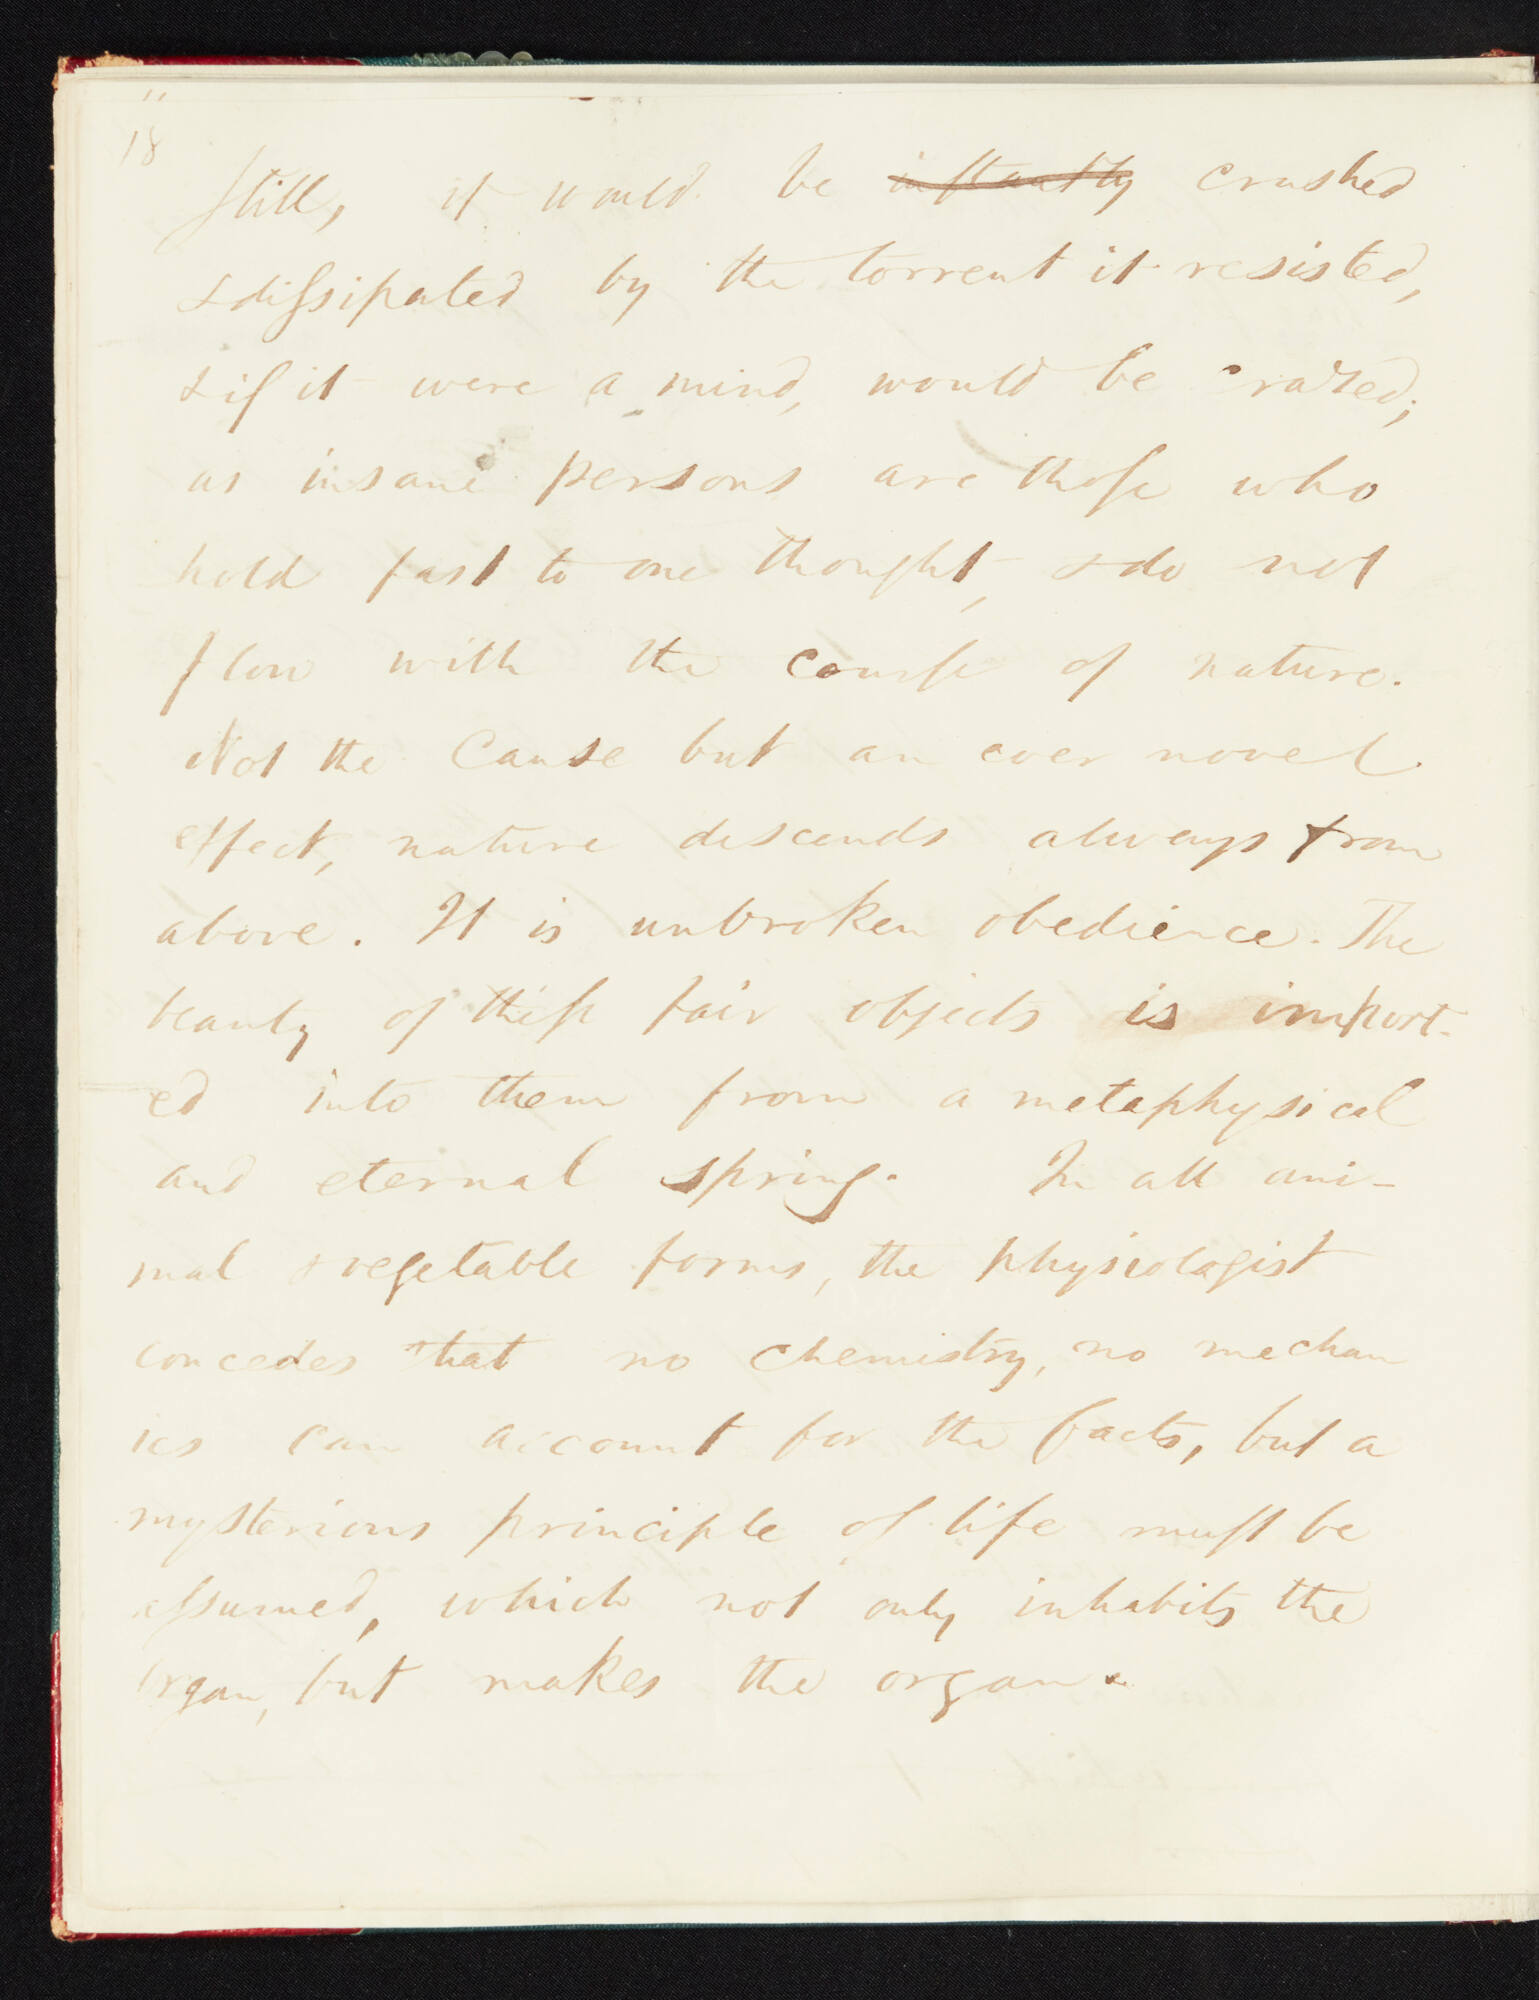 18
still, it would be instantly crushed
& dissipated by the torrent it resisted,
& if it were a mind, would be crazed;
as insane persons are those who
hold fast to one thought, & do not
flow with the course of nature.
Not the Cause but an ever novel
effect, nature descends always from
above. It is unbroken obedience. The
beauty of these fair objects is import-
ed into them from a metaphysical
and eternal spring. In all ani-
mal & vegetable forms, the physiologist
concedes that no chemistry, no mechan
ics can account for the facts, but a
mysterious principle of life must be
assumed, which not only inhabits the
organ, but makes the organ.